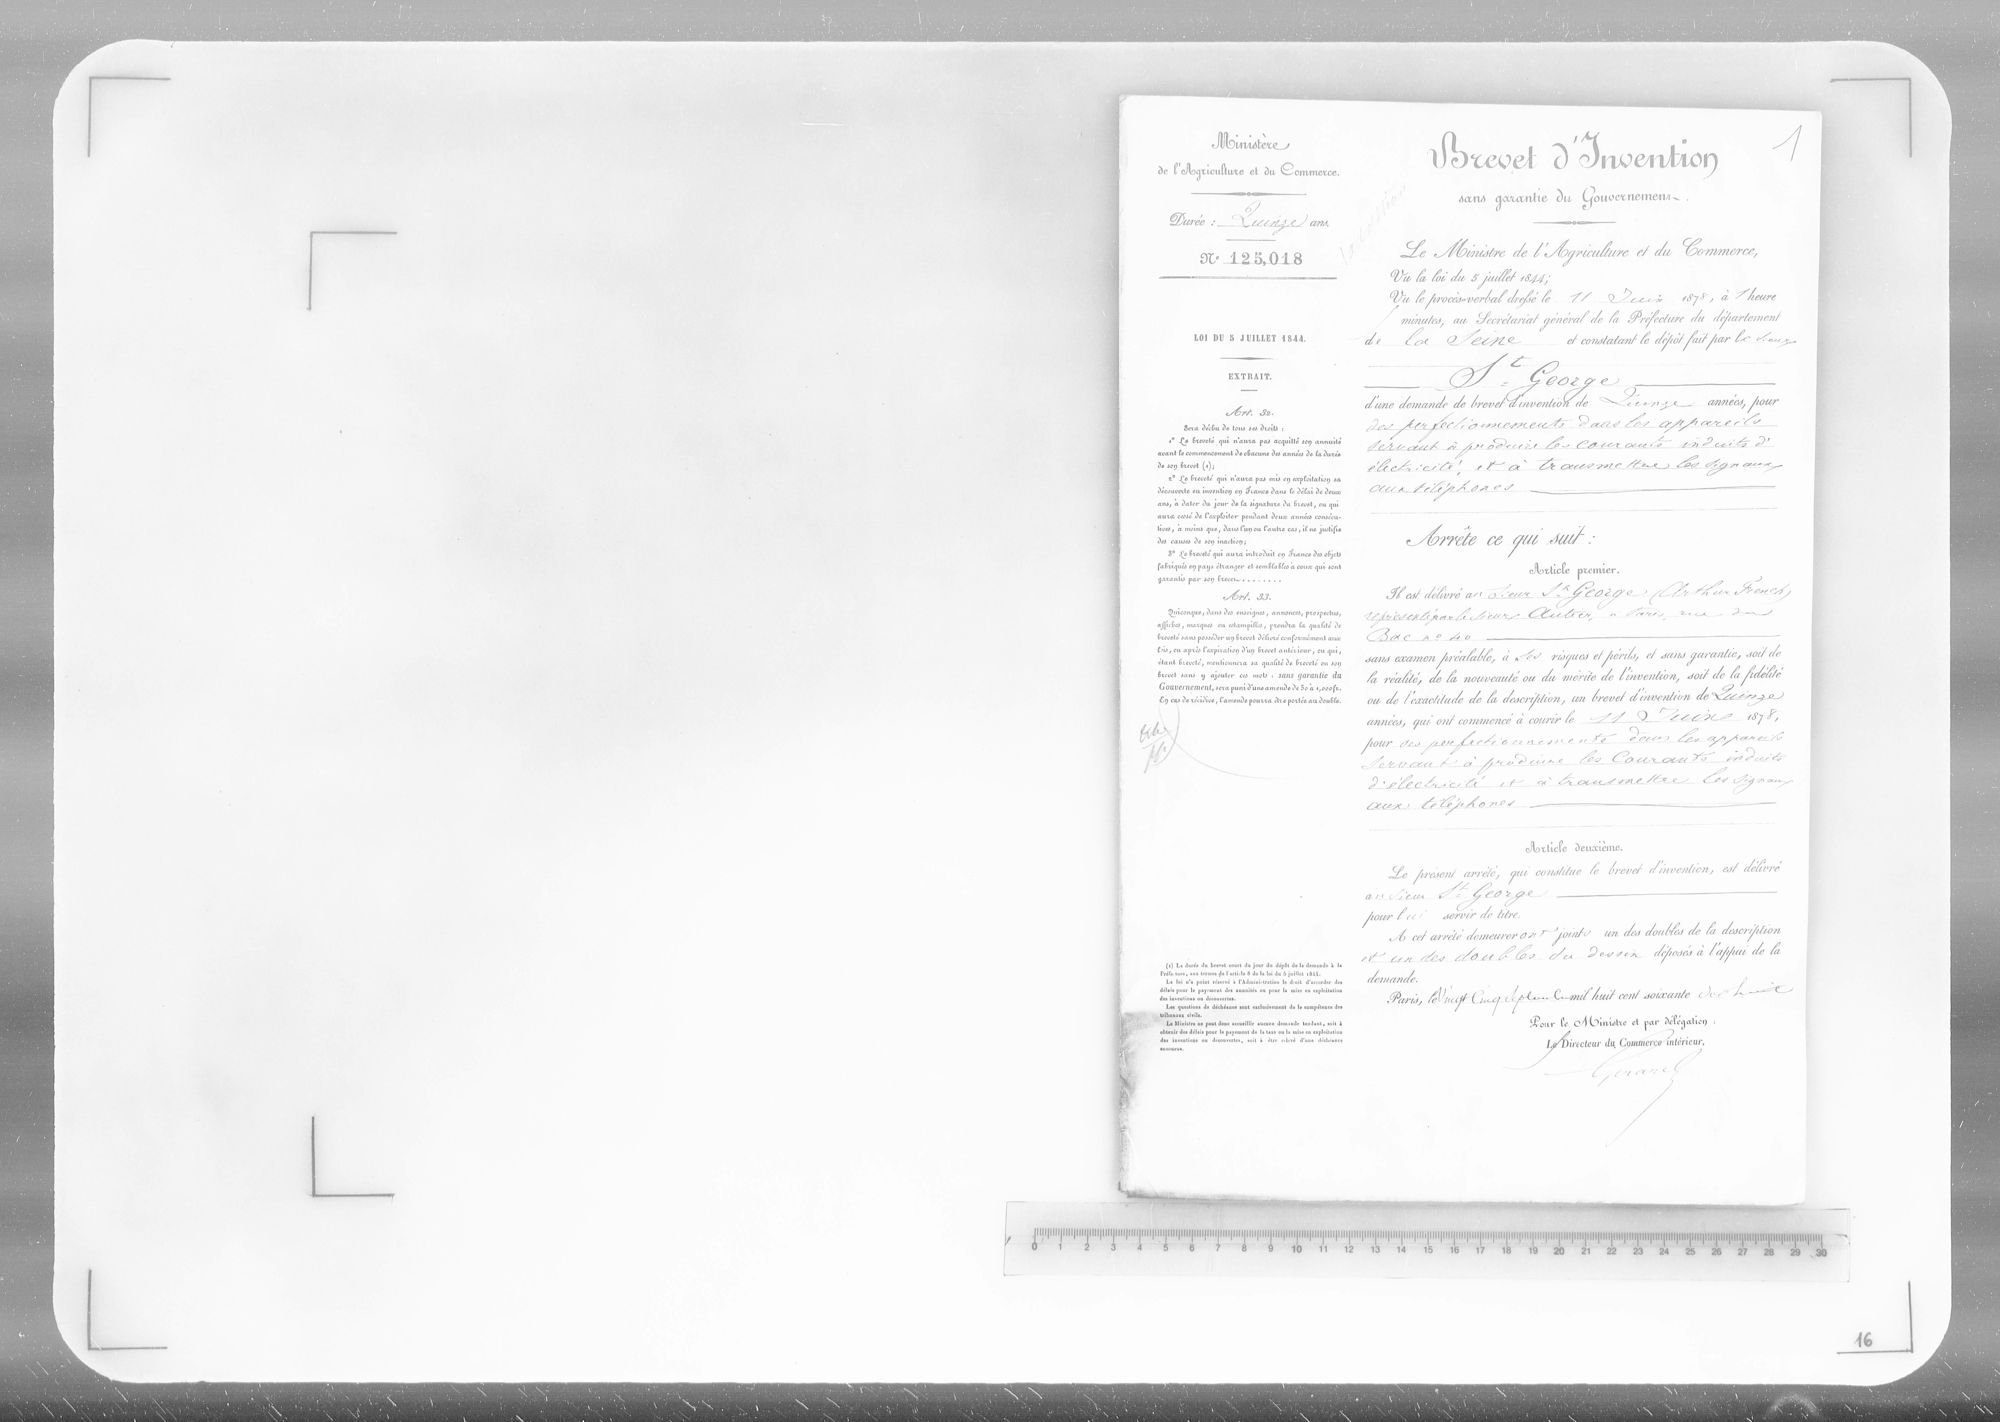 Ministère
de l'Agriculture et du Commerce.
Durée : Quinze ans.
N° 125,018
LOI DU 5 JUILLET 1844.
EXTRAIT.
Art. 32.
Sera déchu de tous ses droits :
1° Le breveté qui n'aura pas acquitté son annuité
avant le commencement de chacune des années de la durée
de son brevet (1);
2° Le breveté qui n'aura pas mis en exploitation sa
découverte ou invention en France dans le délai de deux
ans, à dater du jour de la signature du brevet, ou qui
aura cessé de l'exploiter pendant deux années consécu-
tives, à moins que, dans l'un ou l'autre cas, il ne justifie
des causes de son inaction;
3° Le breveté qui aura introduit en France des objets
fabriqués en pays étranger et semblables à ceux qui sont
garantis par son brevet........
Art. 33.
Quiconque, dans des enseignes, annonces, prospectus,
affiches, marques ou estampilles, prendra la qualité de
breveté sans posséder un brevet délivré conformément aux
lois, ou après l'expiration d'un brevet antérieur, ou qui,
étant breveté, mentionnera sa qualité de breveté ou son
brevet sans y ajouter ces mots : sans garantie du
Gouvernement, sera puni d'une amende de 50 à 1,000 fr.
En cas de récidive, l'amende pourra être portée au double.
(1) La durée du brevet court du jour du dépôt de la demande à la
Préfecture, aux termes de l'article 8 de la loi du 5 juillet 1844.
La loi n'a point réservé à l'Administration le droit d'accorder des
délais pour le payement des annuités ou pour la mise en exploitation
des inventions ou découvertes.
Les questions de déchéance sont exclusivement de la compétence des
tribunaux civils.
Le Ministre ne peut donc accueillir aucune demande tendant, soit à
obtenir des délais pour le payement de la taxe ou la mise en exploitation
des inventions ou découvertes, soit à être relevé d'une déchéance
encourue.
1
Brevet d'Invention
sans garantie du Gouvernement.
Le Ministre de l'Agriculture et du Commerce,
Vu la loi du 5 juillet 1844;
Vu le procès-verbal dressé le 11 Juin 1878, à 1 heure
minutes, au Secrétariat général de la Préfecture du département
de la Seine et constatant le dépôt fait par le Sieur
St George
d'une demande de brevet d'invention de Quinze années, pour
des perfectionnements dans les appareils
servant à produire les courants induits d'
électricité, et à transmettre les signaux
aux téléphones
Arrête ce qui suit :
Article premier.
Il est délivré au Sieur St George (Arthur French)
représenté par le sieur à Paris, rue du
Bac n° 40
sans examen préalable, à ses risques et périls, et sans garantie, soit de
la réalité, de la nouveauté ou du mérite de l'invention, soit de la fidélité
ou de l'exactitude de la description, un brevet d'invention de Quinze
années, qui ont commencé à courir le 11 Juin 1878,
pour des perfectionnements dans les appareils
servant à produire les Courants induits
d'électricité et à transmettre les signaux
aux téléphones
Article deuxième.
Le présent arrêté, qui constitue le brevet d'invention, est délivré
au Sieur St George
pour lui servir de titre.
A cet arrêté demeureront joints un des doubles de la description
et un des doubles du dessin déposés à l'appui de la
demande.
Paris, le Vingt Cinq Septembre mil huit cent soixante dix huit
Pour le Ministre et par délégation :
Le Directeur du Commerce intérieur,
0 1 2 3 4 5 6 7 8 9 10 11 12 13 14 15 16 17 18 19 20 21 22 23 24 25 26 27 28 29 30
16